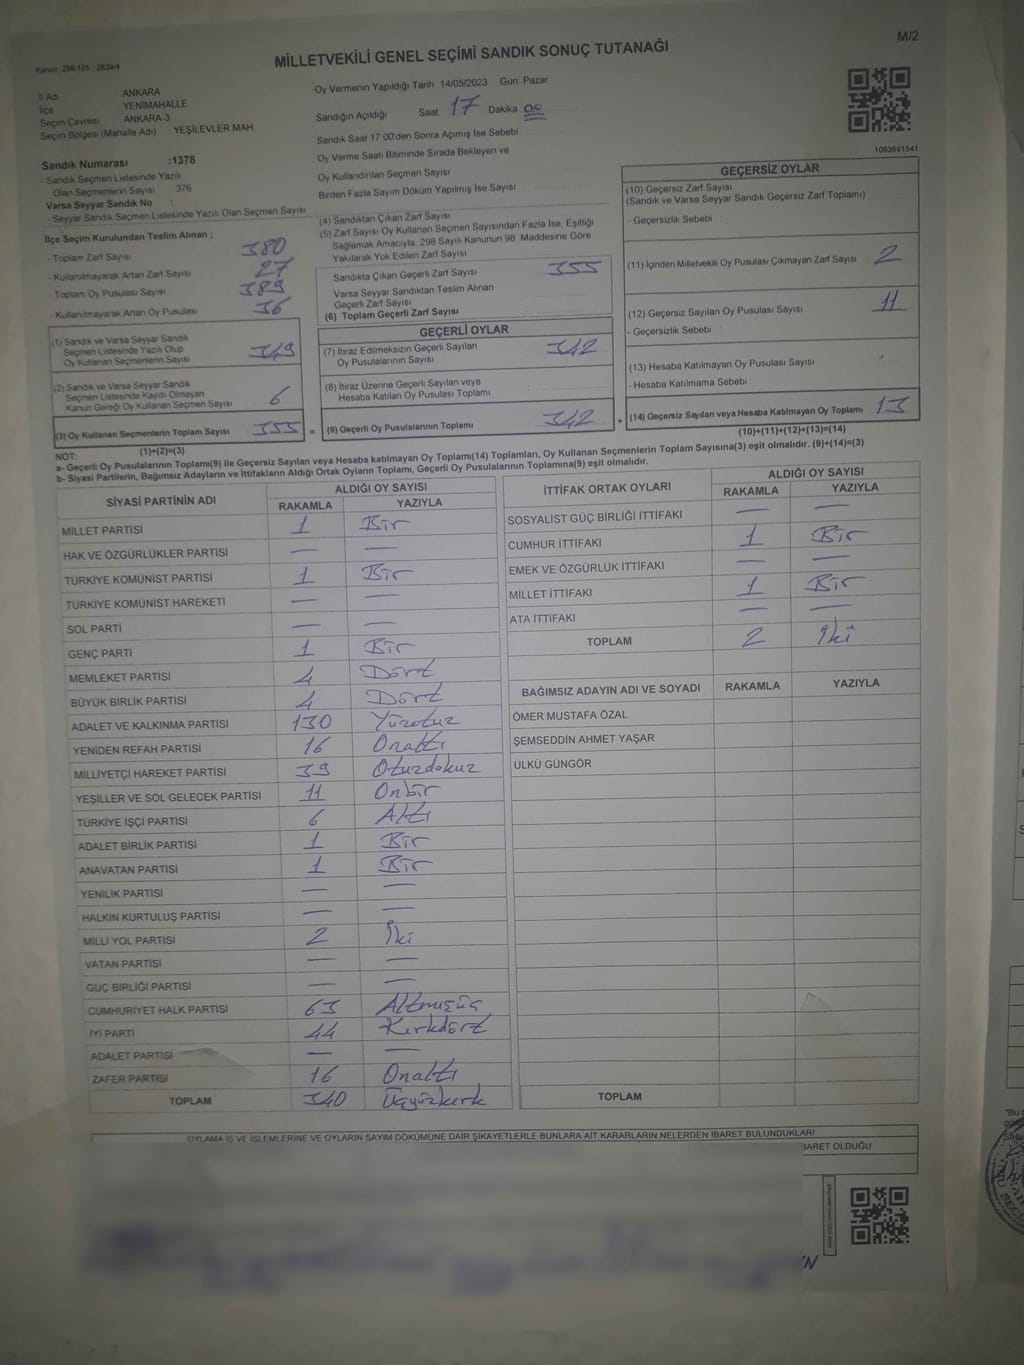 M/2
Kanun: 298/105 - 2839/4
MİLLETVEKİLİ GENEL SEÇİMİ SANDIK SONUÇ TUTANAĞI
İl Adı ANKARA
İlçe YENİMAHALLE
Seçim Çevresi ANKARA-3
Seçim Bölgesi (Mahalle Adı) YEŞİLEVLER MAH
Sandık Numarası :1378
- Sandık Seçmen Listesinde Yazılı
Olan Seçmenlerin Sayısı 376
Varsa Seyyar Sandık No :
- Seyyar Sandık Seçmen Listesinde Yazılı Olan Seçmen Sayısı
İlçe Seçim Kurulundan Teslim Alınan ;
- Toplam Zarf Sayısı 380
- Kullanılmayarak Artan Zarf Sayısı 27
- Toplam Oy Pusulası Sayısı 389
- Kullanılmayarak Artan Oy Pusulası 36
(1) Sandık ve Varsa Seyyar Sandık
Seçmen Listesinde Yazılı Olup
Oy Kullanan Seçmenlerin Sayısı 349
(2) Sandık ve Varsa Seyyar Sandık
Seçmen Listesinde Kayıtlı Olmayan
Kanun Gereği Oy Kullanan Seçmen Sayısı 6
(3) Oy Kullanan Seçmenlerin Toplam Sayısı 355 =
(1)+(2)=(3)
Oy Vermenin Yapıldığı Tarih 14/05/2023 Gün Pazar
Sandığın Açıldığı Saat 17 Dakika 00
Sandık Saat 17:00'den Sonra Açılmış İse Sebebi
Oy Verme Saati Bitiminde Sırada Bekleyen ve
Oy Kullandırılan Seçmen Sayısı
Birden Fazla Sayım Döküm Yapılmış İse Sayısı
(4) Sandıktan Çıkan Zarf Sayısı
(5) Zarf Sayısı Oy Kullanan Seçmen Sayısından Fazla İse, Eşitliği
Sağlamak Amacıyla, 298 Sayılı Kanunun 98. Maddesine Göre
Yakılarak Yok Edilen Zarf Sayısı
Sandıkta Çıkan Geçerli Zarf Sayısı 355
Varsa Seyyar Sandıktan Teslim Alınan
Geçerli Zarf Sayısı
(6) Toplam Geçerli Zarf Sayısı
GEÇERLİ OYLAR
(7) İtiraz Edilmeksizin Geçerli Sayılan
Oy Pusulalarının Sayısı 342
(8) İtiraz Üzerine Geçerli Sayılan veya
Hesaba Katılan Oy Pusulası Toplamı
(9) Geçerli Oy Pusulalarının Toplamı 342 +
1083691541
GEÇERSİZ OYLAR
(10) Geçersiz Zarf Sayısı
(Sandık ve Varsa Seyyar Sandık Geçersiz Zarf Toplamı)
- Geçersizlik Sebebi :
(11) İçinden Milletvekili Oy Pusulası Çıkmayan Zarf Sayısı 2
(12) Geçersiz Sayılan Oy Pusulası Sayısı 11
- Geçersizlik Sebebi :
(13) Hesaba Katılmayan Oy Pusulası Sayısı
- Hesaba Katılmama Sebebi :
(14) Geçersiz Sayılan veya Hesaba Katılmayan Oy Toplamı 13
(10)+(11)+(12)+(13)=(14)
NOT:
a- Geçerli Oy Pusulalarının Toplamı(9) ile Geçersiz Sayılan veya Hesaba katılmayan Oy Toplamı(14) Toplamları, Oy Kullanan Seçmenlerin Toplam Sayısına(3) eşit olmalıdır. (9)+(14)=(3)
b- Siyasi Partilerin, Bağımsız Adayların ve İttifakların Aldığı Ortak Oyların Toplamı, Geçerli Oy Pusulalarının Toplamına(9) eşit olmalıdır.
SİYASİ PARTİNİN ADI ALDIĞI OY SAYISI
RAKAMLA YAZIYLA
MİLLET PARTİSİ 1 Bir
HAK VE ÖZGÜRLÜKLER PARTİSİ — —
TÜRKİYE KOMÜNİST PARTİSİ 1 Bir
TÜRKİYE KOMÜNİST HAREKETİ — —
SOL PARTİ — —
GENÇ PARTİ 1 Bir
MEMLEKET PARTİSİ 4 Dört
BÜYÜK BİRLİK PARTİSİ 4 Dört
ADALET VE KALKINMA PARTİSİ 130 Yüzotuz
YENİDEN REFAH PARTİSİ 16 Onaltı
MİLLİYETÇİ HAREKET PARTİSİ 39 Otuzdokuz
YEŞİLLER VE SOL GELECEK PARTİSİ 11 Onbir
TÜRKİYE İŞÇİ PARTİSİ 6 Altı
ADALET BİRLİK PARTİSİ 1 Bir
ANAVATAN PARTİSİ 1 Bir
YENİLİK PARTİSİ — —
HALKIN KURTULUŞ PARTİSİ — —
MİLLİ YOL PARTİSİ 2 İki
VATAN PARTİSİ — —
GÜÇ BİRLİĞİ PARTİSİ — —
CUMHURİYET HALK PARTİSİ 63 Altmışüç
İYİ PARTİ 44 Kırkdört
ADALET PARTİSİ — —
ZAFER PARTİSİ 16 Onaltı
TOPLAM 340 Üçyüzkırk
İTTİFAK ORTAK OYLARI ALDIĞI OY SAYISI
RAKAMLA YAZIYLA
SOSYALİST GÜÇ BİRLİĞİ İTTİFAKI — —
CUMHUR İTTİFAKI 1 Bir
EMEK VE ÖZGÜRLÜK İTTİFAKI — —
MİLLET İTTİFAKI 1 Bir
ATA İTTİFAKI — —
TOPLAM 2 İki
BAĞIMSIZ ADAYIN ADI VE SOYADI RAKAMLA YAZIYLA
ÖMER MUSTAFA ÖZAL
ŞEMSEDDİN AHMET YAŞAR
ÜLKÜ GÜNGÖR
TOPLAM
OYLAMA İŞ VE İŞLEMLERİNE VE OYLARIN SAYIM DÖKÜMÜNE DAİR ŞİKAYETLERLE BUNLARA AİT KARARLARIN NELERDEN İBARET BULUNDUKLARI
İBARET OLDUĞU